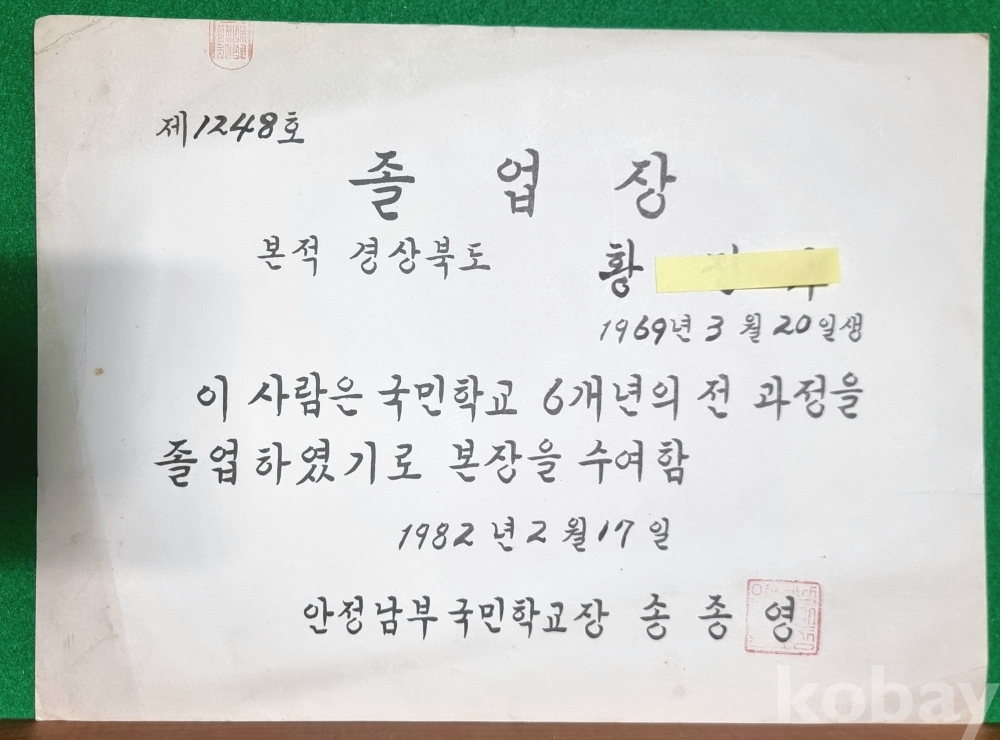 제1248호
졸 업 장
본적 경상북도
황
1969년 3월 20일생
이 사람은 국민학교 6개년의 전 과정을
졸업하였기로 본장을 수여함
1982년 2월 17일
안정남부국민학교장 송 종 영
kobay